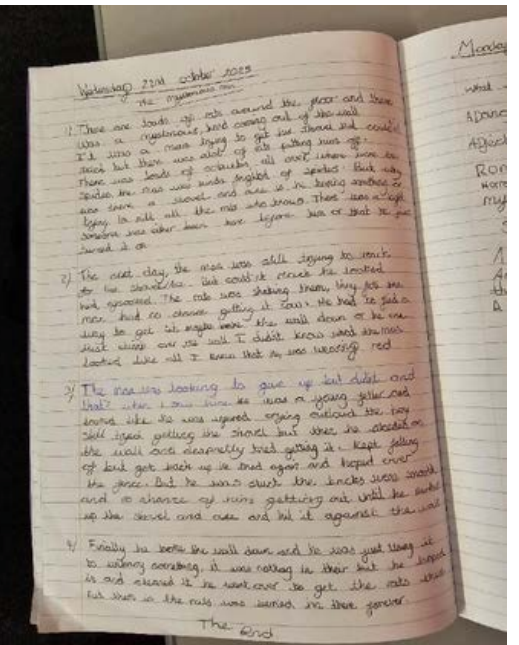 Wednesday 22nd october 2025
The mysterious man
1) There are loads of rats around the floor and there
was a mysterious hand coming out of the wall
It was a man trying to get his shovel but couldn't
but there was alot of rats putting him off.
There was loads of all over, where were the
spiders, the man was kinda of spiders. But why
was there a shovel and axe is he burying something or
trying to kill all the rats who knows. There was a light
someone has either been here before him or that he just
turned it on
2) The next day, the man was still trying to reach
for the shovel. But could'nt reach he looked
The rats was shaking them, they felt the
man had no chance getting it now. He had to find a
way to get it maybe break the wall down or he can
just climb over the wall I didn't know what the man
looked like all I knew that he was wearing red
3) The man was looking to give up but didnt and
that's when I saw him he was a young feller and
sound like he was injured crying outloud the boy
still tried getting the shovel but then he on
the wall and tried getting it. Kept falling
of but got back up he tried again and hoped over
the fence. But he was stuck the bricks were smooth
and no chance of him getting out until he
up the shovel and axe and hit it against the wall
4) Finally he broke the wall down and he was just using it
to unbury something, it was nothing in their but he
is and cleaned it he went over to get the rats
Put them in the was buried in there forever.
The End
Monday
what
A Danc
Adject
Rom
Horro
my